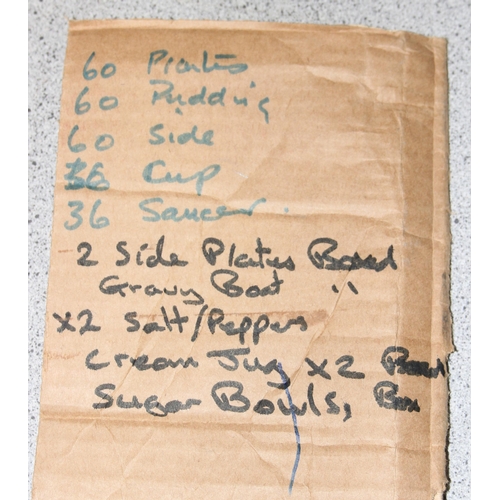 60 Plates
60 Pudding
60 Side
36 Cup
36 Saucer.
2 Side Plates Boxed
Gravy Boat "
x2 Salt/Peppers
Cream Jug x2
Sugar Bowls, Box